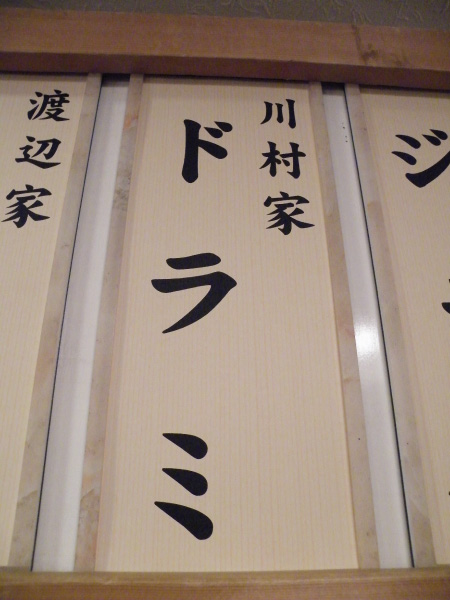 川村家
ドラミ
渡辺家